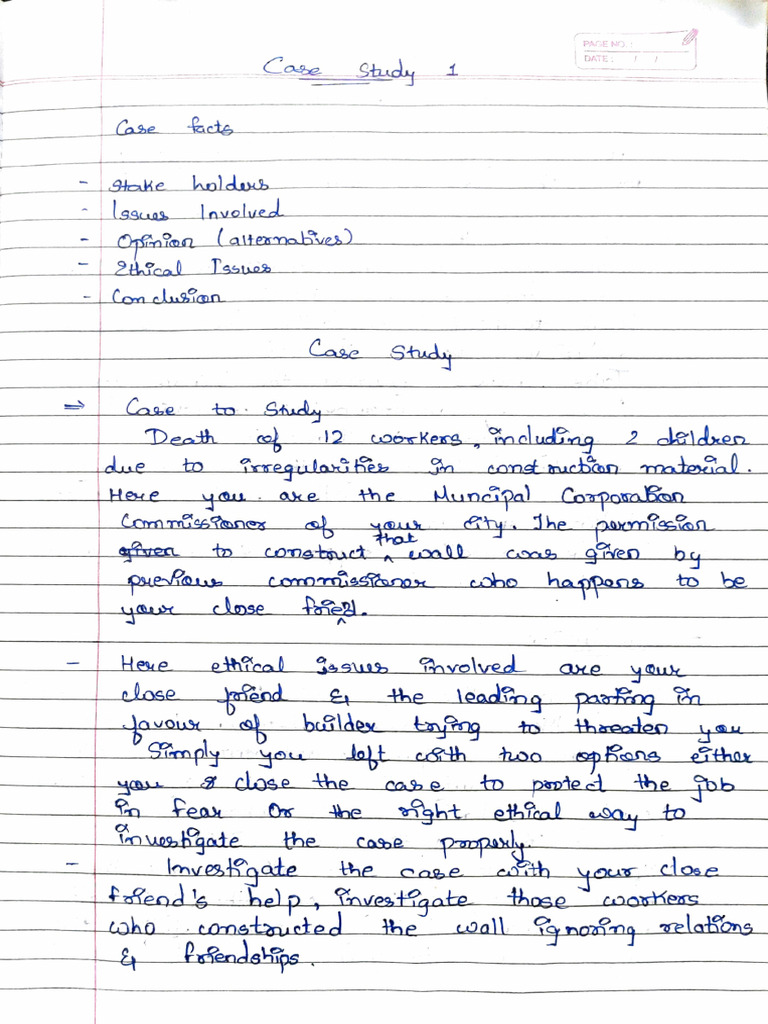 PAGE NO. :
DATE : / /
Case Study 1
Case facts
- Stake holders
- Issues Involved
- Opinion (alternatives)
- Ethical Issues
- Conclusion
Case Study
⇒ Case to Study
Death of 12 workers, including 2 children
due to irregularities in construction material.
Here you are the Muncipal Corporation
Commissioner of your city. The permission
given to construct that wall was given by
previous commissioner who happens to be
your close friend.
- Here ethical issues involved are your
close friend & the leading parting in
favour of builder trying to threaten you
Simply you left with two options either
you close the case to protect the job
in fear or the right ethical way to
investigate the case properly.
- Investigate the case with your close
friend's help, investigate those workers
who constructed the wall ignoring relations
& friendships.